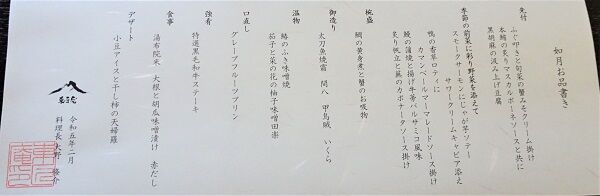 如月お品書き
先付
ふぐ叩きと旬菜の蟹みそクリーム掛け
本鮪の炙りマスカルポーネソースと共に
黒胡麻の汲み上げ豆腐
季節の前菜に彩り野菜を添えて
スモークサーモンにじゃが芋ソテー
サワークリームキャビア添え
鴨の香草ロティに
カマンベールマーマレードソース掛け
鰻の蒲焼と揚げ牛蒡バルサミコ風味
炙り帆立と蕪のカポナータソース掛け
椀盛
鯛の黄身煮と蟹のお吸物
御造り
太刀魚焼霜 間八 甲烏賊 いくら
温物
鰆のふき味噌焼
茄子と菜の花の柚子味噌田楽
口直し
グレープフルーツプリン
強肴
特選黒毛和牛ステーキ
食事
湯布院米 大根と胡瓜味噌漬け 赤だし
デザート
小豆アイスと干し柿の天婦羅
令和五年二月
料理長 大野